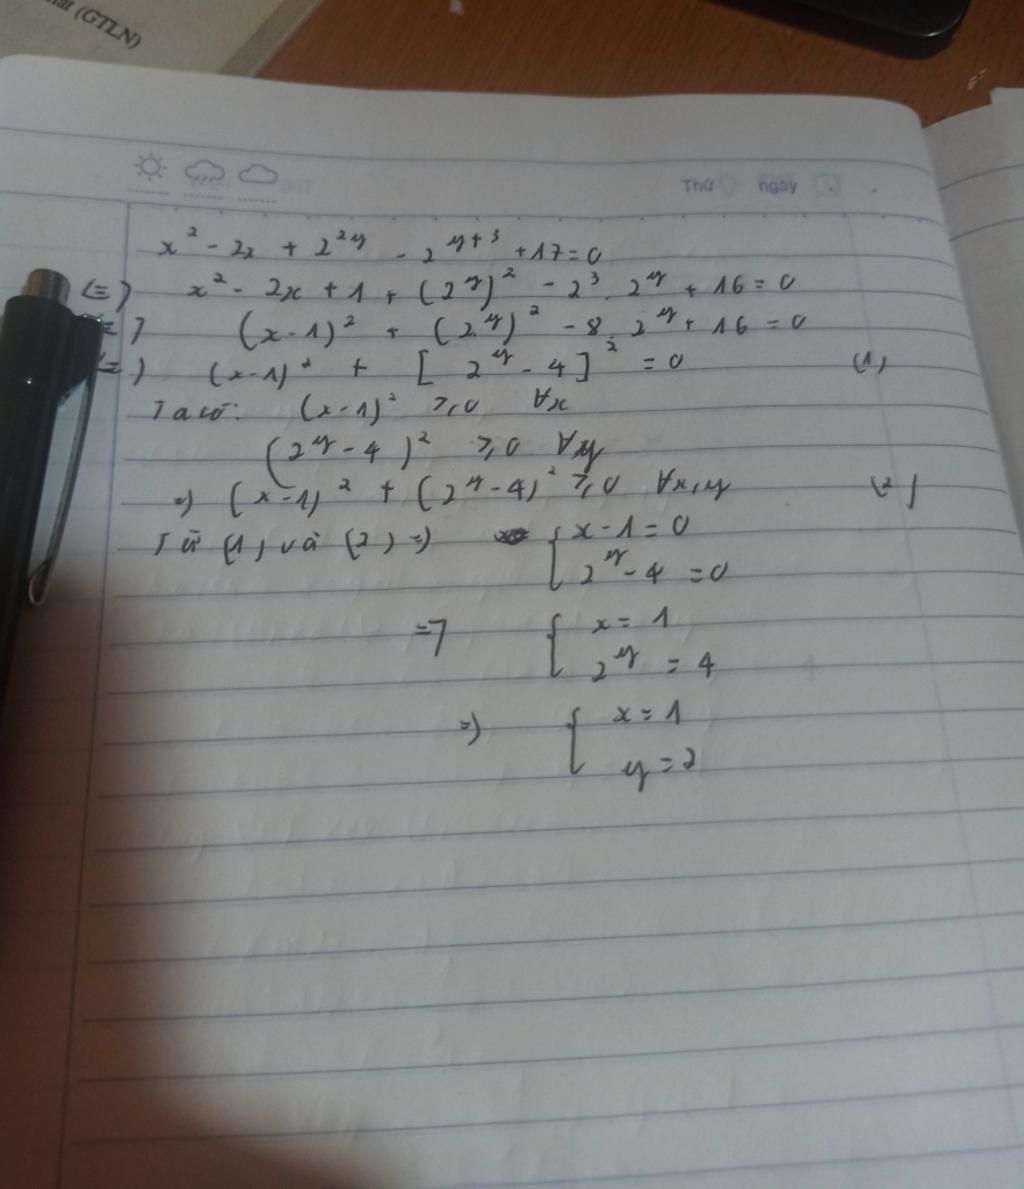 (GTLN)
Thứ ngày
x² - 2x + 2^{2y} - 2^{y+3} + 17 = 0
(=) x² - 2x + 1 + (2^y)² - 2³. 2^y + 16 = 0
(=) (x-1)² + (2^y)² - 8. 2^y + 16 = 0
(=) (x-1)² + [2^y - 4]² = 0 (1)
Ta có: (x-1)² ≥ 0 ∀x
(2^y - 4)² ≥ 0 ∀y
=) (x-1)² + (2^y - 4)² ≥ 0 ∀x,y (2)
Từ (1) và (2) =) { x - 1 = 0
2^y - 4 = 0
=> { x = 1
2^y = 4
=) { x = 1
y = 2